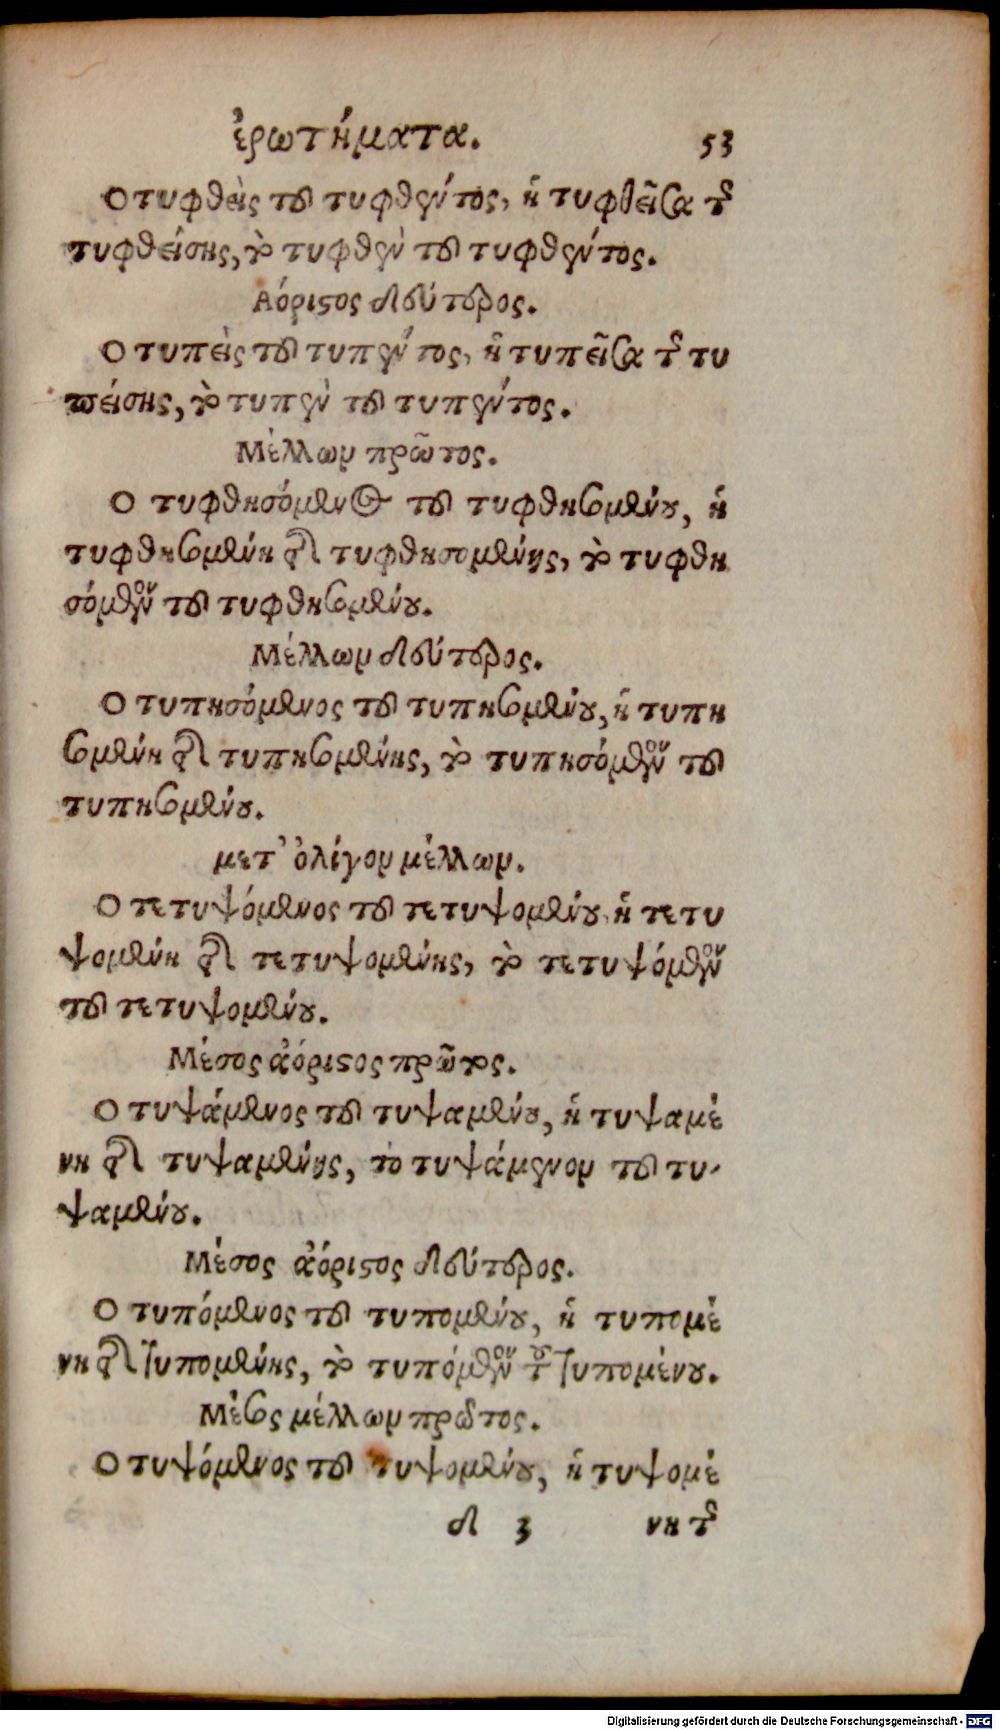 ἐρωτήματα. 53
Ο τυφθεὶς τοῦ τυφθέντος, ἡ τυφθεῖσα τῆς
τυφθείσης, τὸ τυφθὲν τοῦ τυφθέντος.
Αόριστος δεύτερος.
Ο τυπεὶς τοῦ τυπέντος, ἡ τυπεῖσα τῆς τυ
πείσης, τὸ τυπὲν τοῦ τυπέντος.
Μέλλων πρῶτος.
Ο τυφθησόμενος τοῦ τυφθησομένου, ἡ
τυφθησομένη τῆς τυφθησομένης, τὸ τυφθη
σόμενον τοῦ τυφθησομένου.
Μέλλων δεύτερος.
Ο τυπησόμενος τοῦ τυπησομένου, ἡ τυπη
σομένη τῆς τυπησομένης, τὸ τυπησόμενον τοῦ
τυπησομένου.
μετ' ὀλίγον μέλλων.
Ο τετυψόμενος τοῦ τετυψομένου, ἡ τετυ
ψομένη τῆς τετυψομένης, τὸ τετυψόμενον
τοῦ τετυψομένου.
Μέσος ἀόριστος πρῶτος.
Ο τυψάμενος τοῦ τυψαμένου, ἡ τυψαμέ
νη τῆς τυψαμένης, το τυψάμενον τοῦ τυ-
ψαμένου.
Μέσος ἀόριστος δεύτερος.
Ο τυπόμενος τοῦ τυπομένου, ἡ τυπομέ
νη τῆς τυπομένης, τὸ τυπόμενον τοῦ τυπομένου.
Μέσος μέλλων πρῶτος.
Ο τυψόμενος τοῦ τυψομένου, ἡ τυψομέ
δ 3 νη τῆς
Digitalisierung gefördert durch die Deutsche Forschungsgemeinschaft - DFG